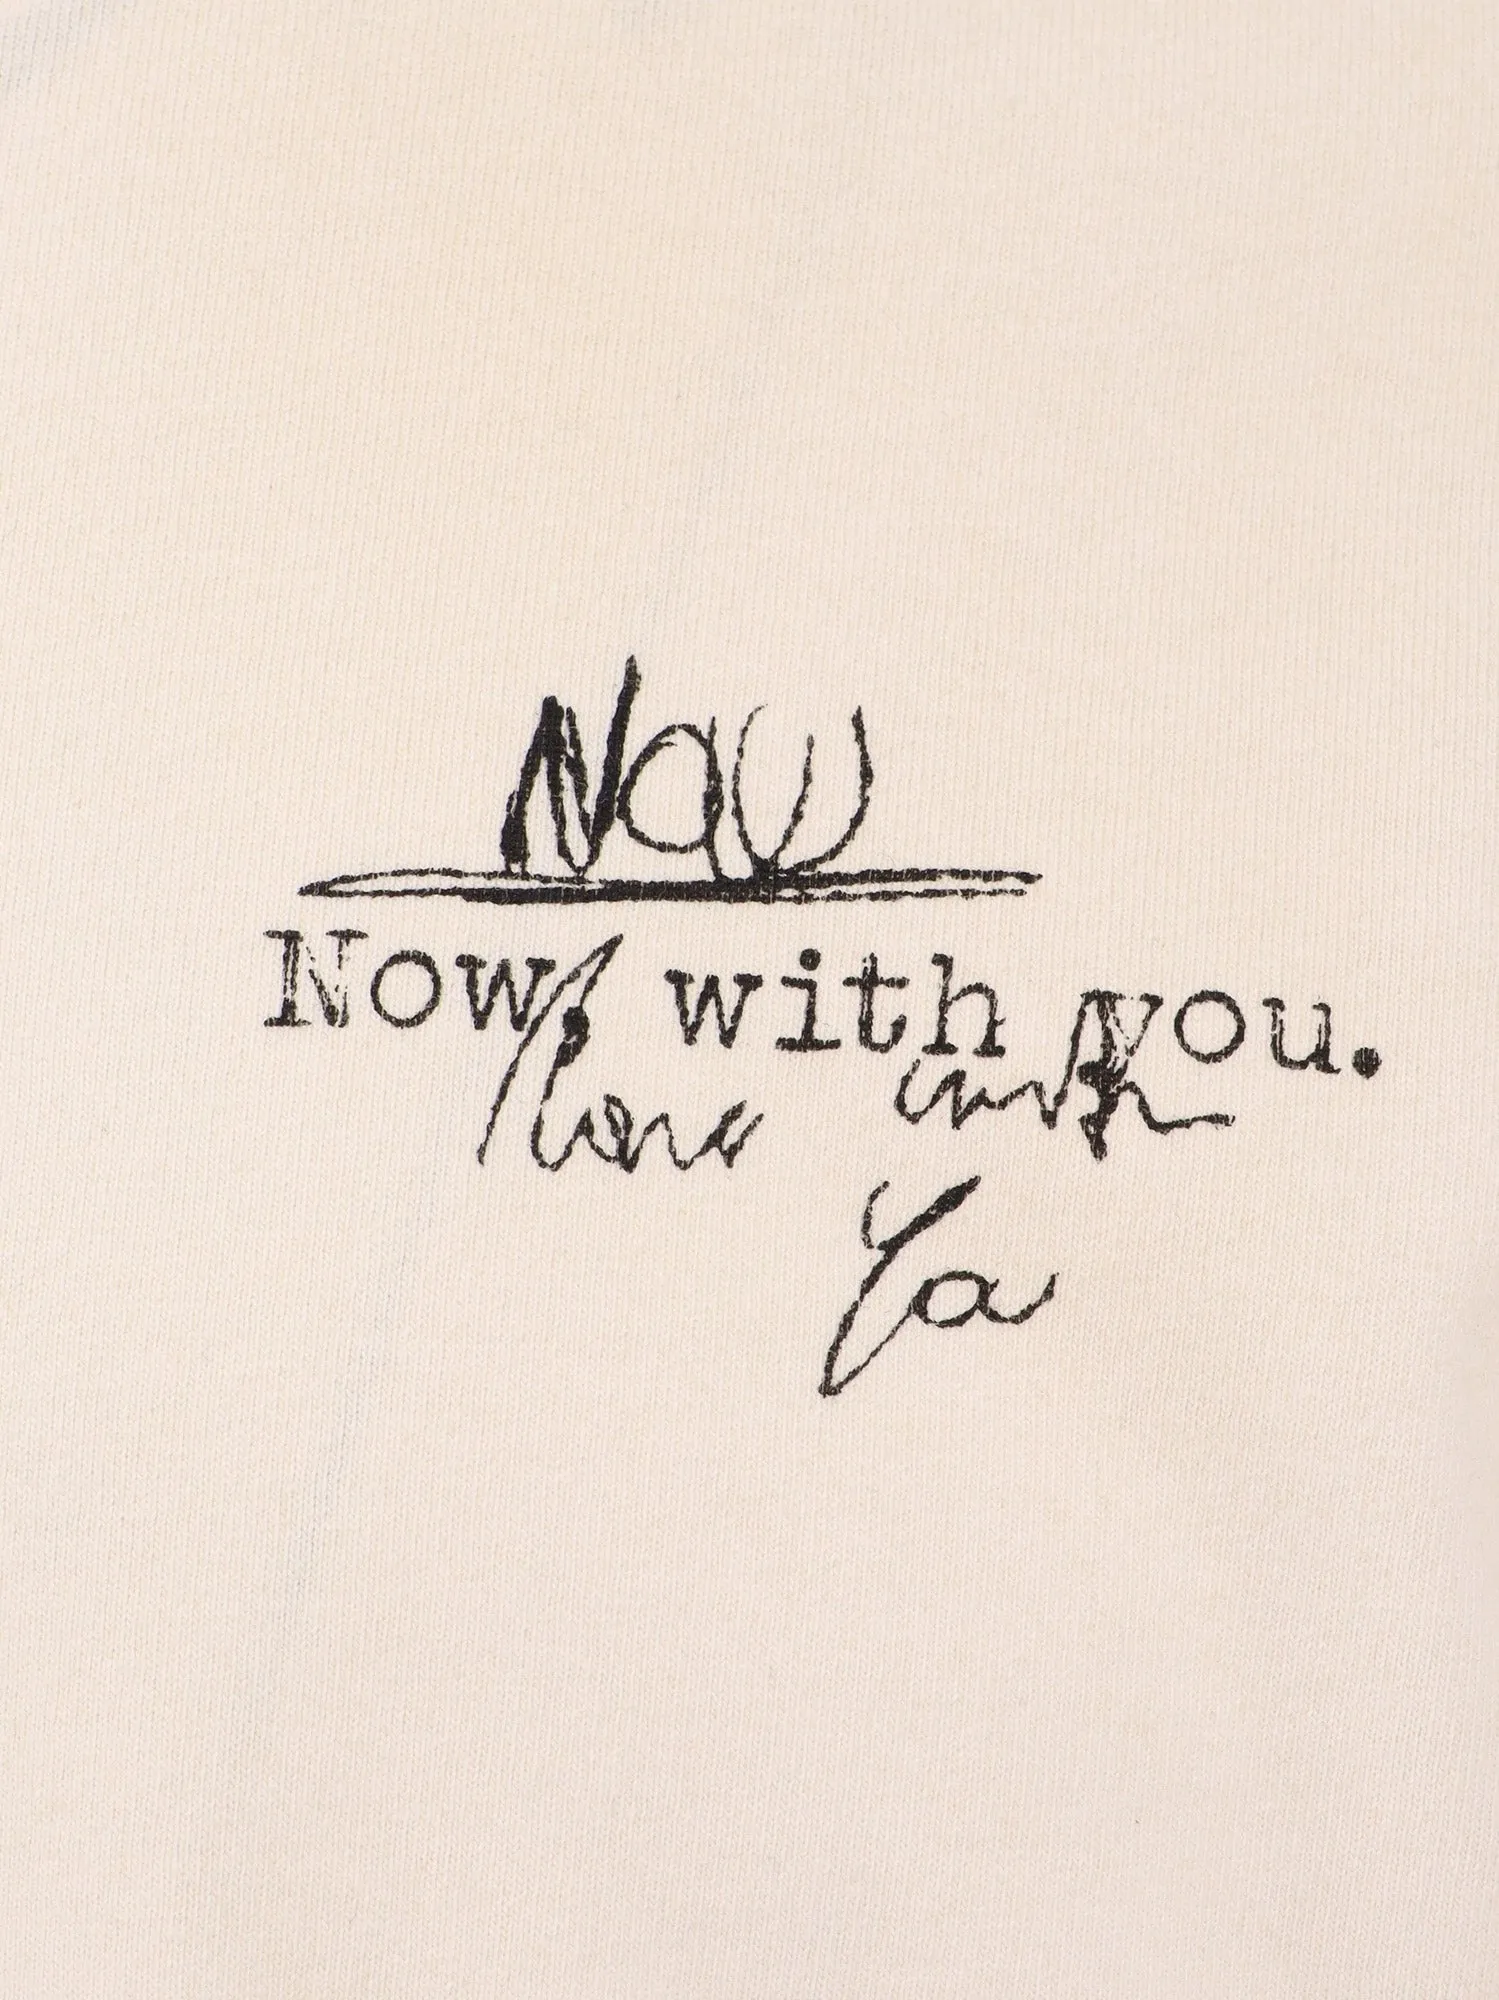 Now
Now, with you.
Now with
Ya